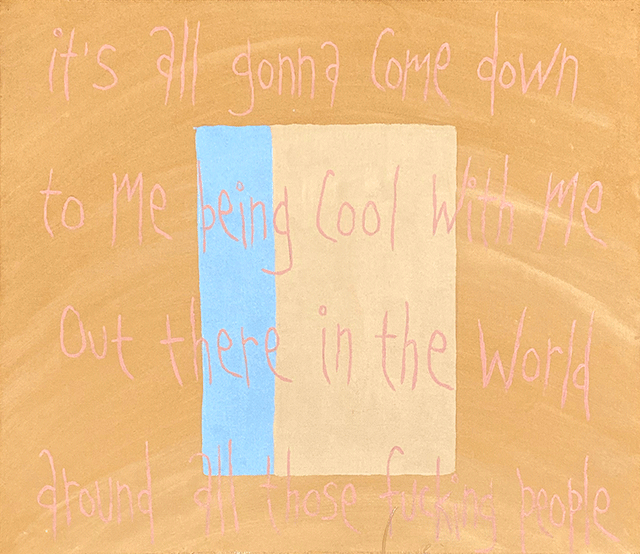 it's all gonna Come down
to Me being Cool With Me
Out there in the World
around all those fucking people